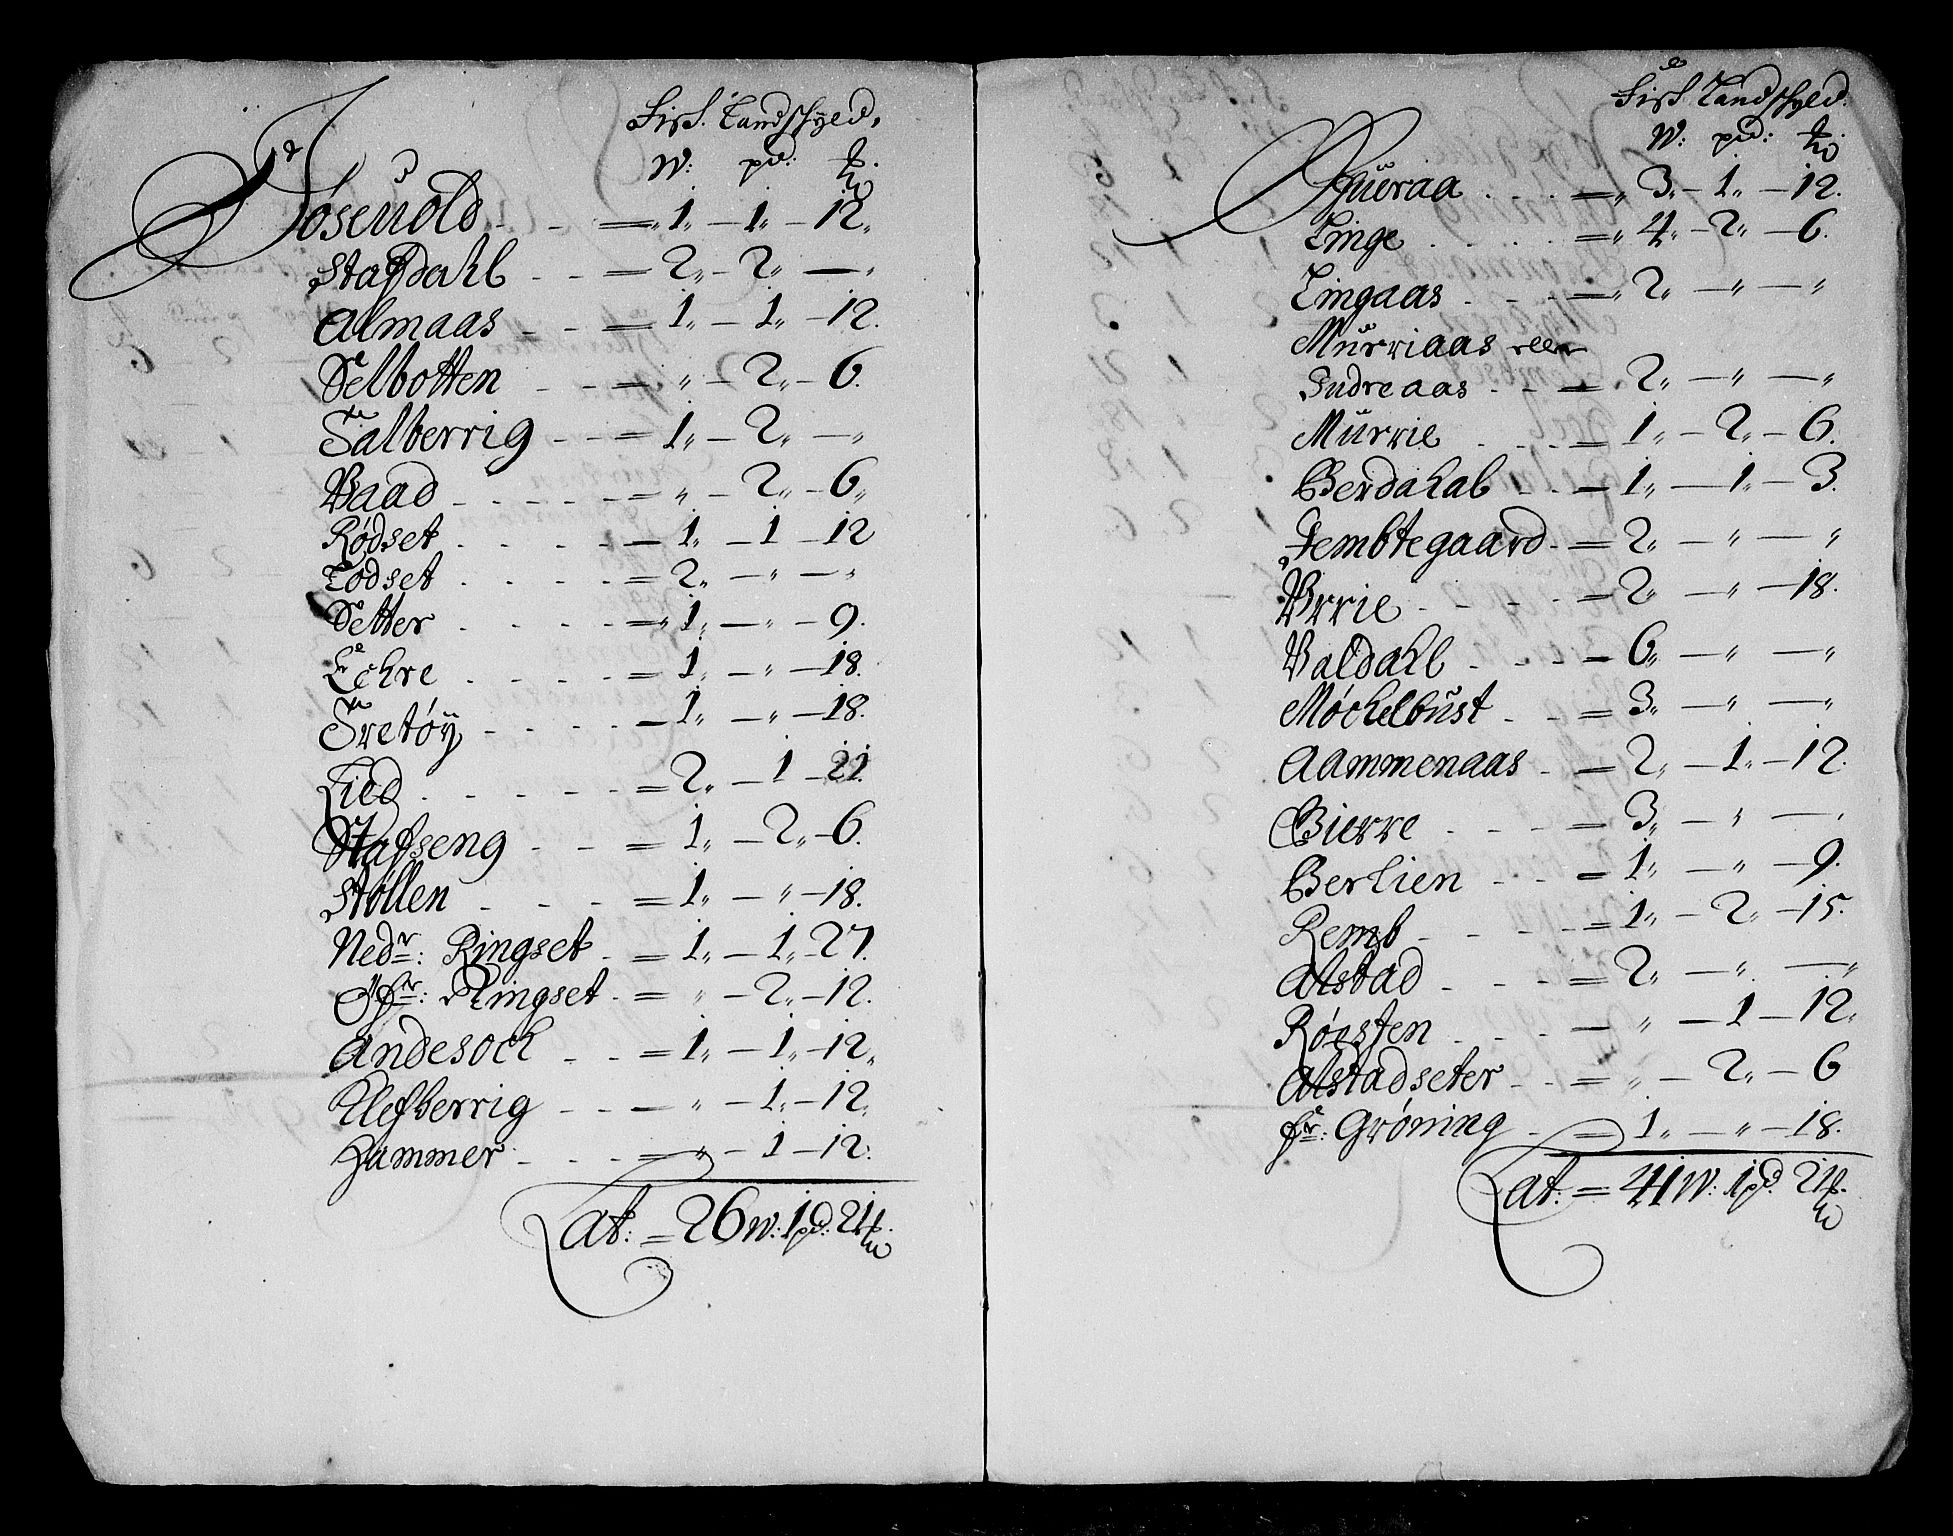 Fisk. Landschÿld,
W: pd: ℔.
Josenold - - =„ 1„ - 1„ - 12„
Stafdahl - - = 2„ - 2„ — „
Almaas - - = 1„ - 1„ - 12.
Selbotten - - = „ - 2„ - 6.
Salberrig - - = 1„ - 2„ - „
Vaad - - - - = „ - 2„ - 6„
Rødset . - . - - 1„ - 1 - 12
Todset . - . - = 2„ - „ - „
Setter . - . - =„ 1„ — „ - 9.
Echre - . - - = 1„ - „ - 18.
Tretøÿ - - - - - 1„ - „ - 18.
Lied . - . - - = 2„ - 1 - 21
Stafseng - - = 1„ - 2„ - 6.
Støllen - - - = 1„ - „ - 18.
Nedr: Ringset - = 1„ - 1„ - 27.
Øfr: Ringset - = „ - 2„ - 12.
Andesock - - = 1„ - 1„ - 12„
Klefberrig - - — „ - 1„ - 12„
Hammer - - - = „ - 1 - 12.
Lat: = 26 W: 1 pd: 21 ℔.
Fisk Landschÿld.
W: pd: ℔.
Skuuraa . . . =„ 3„ - 1„ - 12.
Linge . . . . =„ 4„ - 2„ - 6.
Lingaas . - - =„ 2„ - „ - „
Murriaas eller
Indreaas - - - 2„ - „ - „
Mürrie . - - = 1„ - 2„ - 6.
Berdahal - - - 1„ - 1„ - 3.
Tembtegaard - = 2„ - „ - „
Vrrie - - - - = 2„ - „ - 18.
Valdahl . - - - 6„ - „ - „
Møchelbüst - - = 3„ - „ - „
Aammenaas - - 2„ - 1„ - 12.
Bierre - - - = 3„ - „ - „
Berlien - - - = 1„ - „ - 9.
Remb - - - - = 1„ - 2„ - 15.
Alstad - - - = 2„ - „ - „
Røesten - - - — „ - 1 - 12„
Alstadseter - - = „ - 2„ - 6
fr: Grøning - = 1„ - „ - 18.
Lat: = 41 W: 1 pd: 21 ℔.